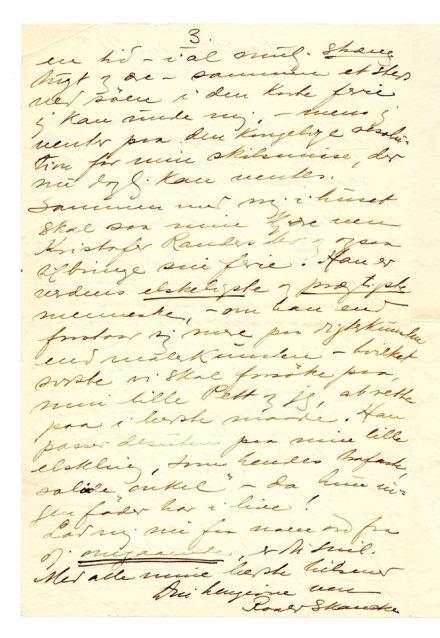 3.
en tid – i al mulig
hygge – sammen et sted
ved søen i den korte ferie
jeg kan unde mig, – mens jeg
venter paa den kongelige resolu-
tion for min skilsmisse, der
nu daglig kan ventes.
Sammen med mig i huset
skal saa min kjære ven
Kristofer Randers ogsaa
tilbringe sin ferie. Han er
verdens elskeligste og prægtigste
menneske, – om han end
forstaar sig mere paa digtekunsten
end malerkunsten – hvilket
sidste vi skal forsøke paa,
min lille Pett og jeg, at rette
paa i bedste maade. Han
passer desuden paa min lille
elskling, som hendes
"onkel" – da hun in-
gen fader har i live!
Lad mig nu faa noen ord fra
omgaaende, er De snil.
Med alle mine bedste hilsener
Din hengivne ven